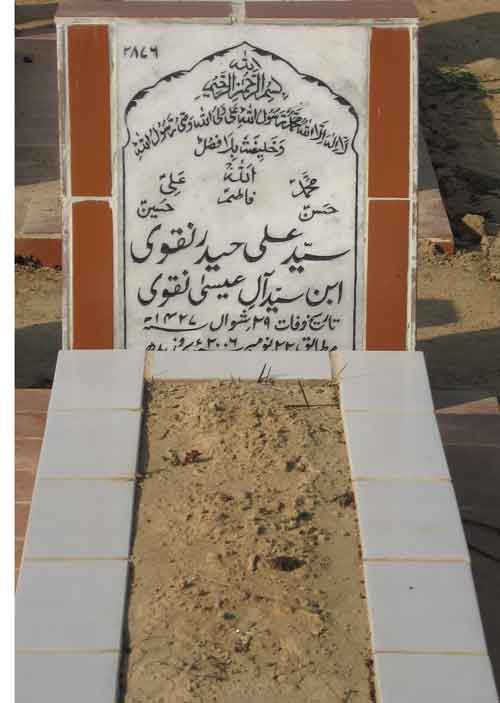 ۲۸۷۶
الله
بسم الله الرحمن الرحیم
لا اله الا الله محمد رسول الله علی ولی الله وصی رسول الله
وخلیفته بلا فصل
الله
محمد علی
فاطمه
حسن حسین
سید علی حیدر نقوی
ابن سید آل عیسیٰ نقوی
تاریخ وفات ۲۹ شوال ۱۴۲۷ھ
مطابق ۲۲ نومبر ۲۰۰۶ء بروز بدھ